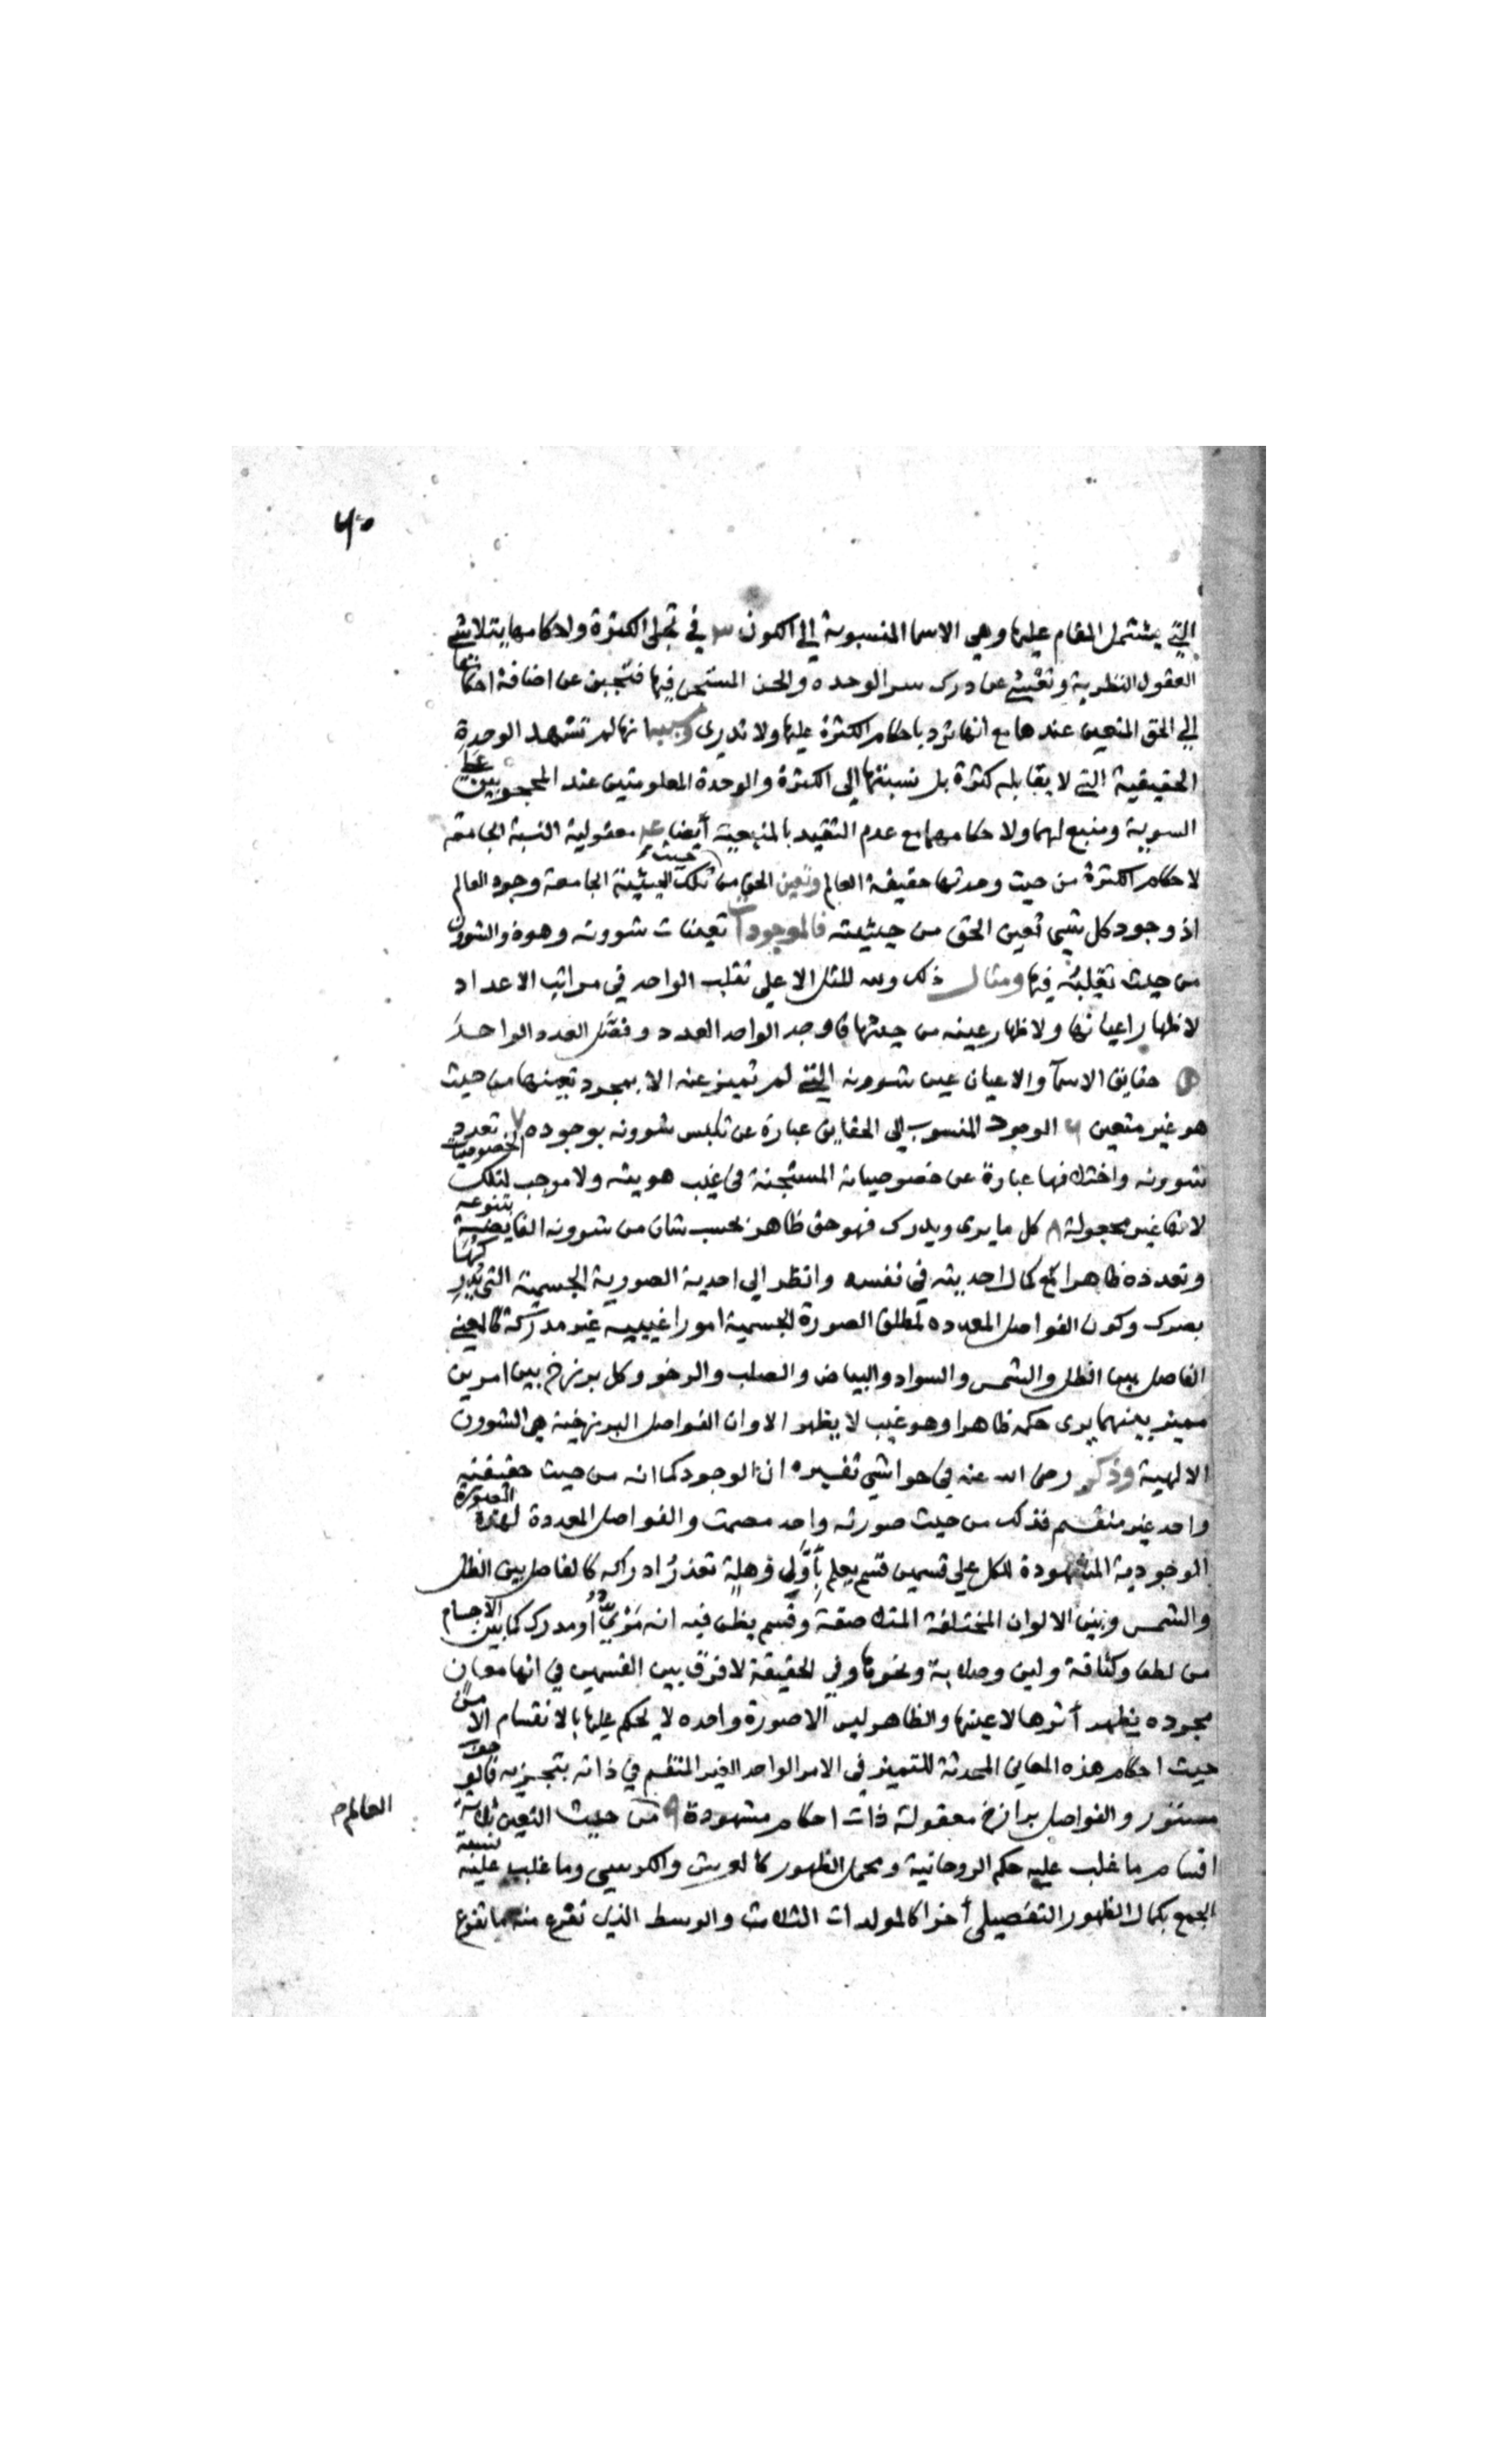 ٤٠
التي يشتمل المقام عليها وهي الاسما المنسوبة الي الكون ٣ في تجلي الكثرة واحكامها يتلاشي
العقول النظرية وتعشي عن درك سر الوحده والحسن المستجن فيها فتجبن عن اضافة احكامها
الي الحق المتعين عندها مع انها ترد باحكام الكثرة عليها ولا تدري وسببه انها لم تشهد الوحدة
الحقيقية التي لا يقابلها كثرة بل نسبتها الي الكثرة والوحدة المعلومتين عند المحجوبين علي
السوية ومنبع لهما ولاحكامهما مع عدم التقيد بالمنبعية أيضا معقولية النسبة الجامعة
لاحكام الكثرة من حيث وحدتها حقيقة العالم وتعين الحق من حيث تلك الحيثية الجامعة وجود العالم
اذ وجود كل شي تعين الحق من حيثيته فالموجودات تعينات شوونه وهو ذو الشوون
من حيث تقلبه فيها ومثال ذلك ولله المثل الاعلي تقلب الواحد في مراتب الاعداد
لاظهار اعيانها ولاظهار عينه من حيثها فاوجد الواحد العدد وفصَّل العدد الواحدَ
٥ حقايق الاسمآ والاعيان عين شوونه التي لم تميز عنه الا بمجرد تعينها من حيث
هو غير متعين ٦ الوجود المنسوب الي الحقايق عبارة عن تلبس شوونه بوجوده ٧ تعدد
شوونه واختلافها عبارة عن خصوصياته المستجنة في غيب هويته ولا موجب لتلك الخصوصيات
لانها غير مجعولة ٨ كل ما يري ويدرك فهو حق ظاهر بحسب شان من شوونه القاضية بتنوعه
وتعدده ظاهرا مع كمال احديته في نفسه وانظر الي احدية الصورية الجسمية التي يدركها
بصرك وكون الفواصل المعدده لمطلق الصورة الجسمية امورا غيبيه غير مدركة كالمعني
الفاصل بين الظل والشمس والسواد والبياض والصلب والرخو وكل برزخ بين امرين
مميز بينهما يري حكمه ظاهرا وهو غيب لا يظهر الا وان الفواصل البرزخية هي الشوون
الالهية وذكر رضي الله عنه في حواشي تفسيره ان الوجود كما انه من حيث حقيقته
واحد غير منقسم فذلك من حيث صورته واحد مصمت والفواصل المعددة لهذه الصورة
الوجودية المشهودة للكل علي قسمين قسم يعلم بأَوَّلي وَهلةٍ تعذرُ ادراكه كالفاصل بين الظل
والشمس وبين الالوان المختلفة المتلاصقة وقسم يظن فيه انه مَرْئِيٌّ أو مدرك كما بين الاجسام
من لطف وكثافة ولين وصلابة ونحوها وفي الحقيقة لا فرق بين القسمين في انها معان
مجرده يظهر أثرها لا عينها والظاهر ليس الا صورة واحده لا يحكم عليها بالانقسام الا من
حيث احكام هذه المعاني المحدثة للتميز في الامر الواحد الغير المنقسم في ذاته بتجزيه فالحق
مستور والفواصل برازخ معقولة ذات احكام مشهودة ٩ من حيث التعين ثلاثة
العالم
اقسام ما غلب عليه حكم الروحانية ومجمل الظهور كالعرش والكرسي وما غلب عليه نسبة
الجمع بكمال الظهور التفصيلي أخرا كالمولدات الثلاث والوسط الذي تفرع منه ما تفرع